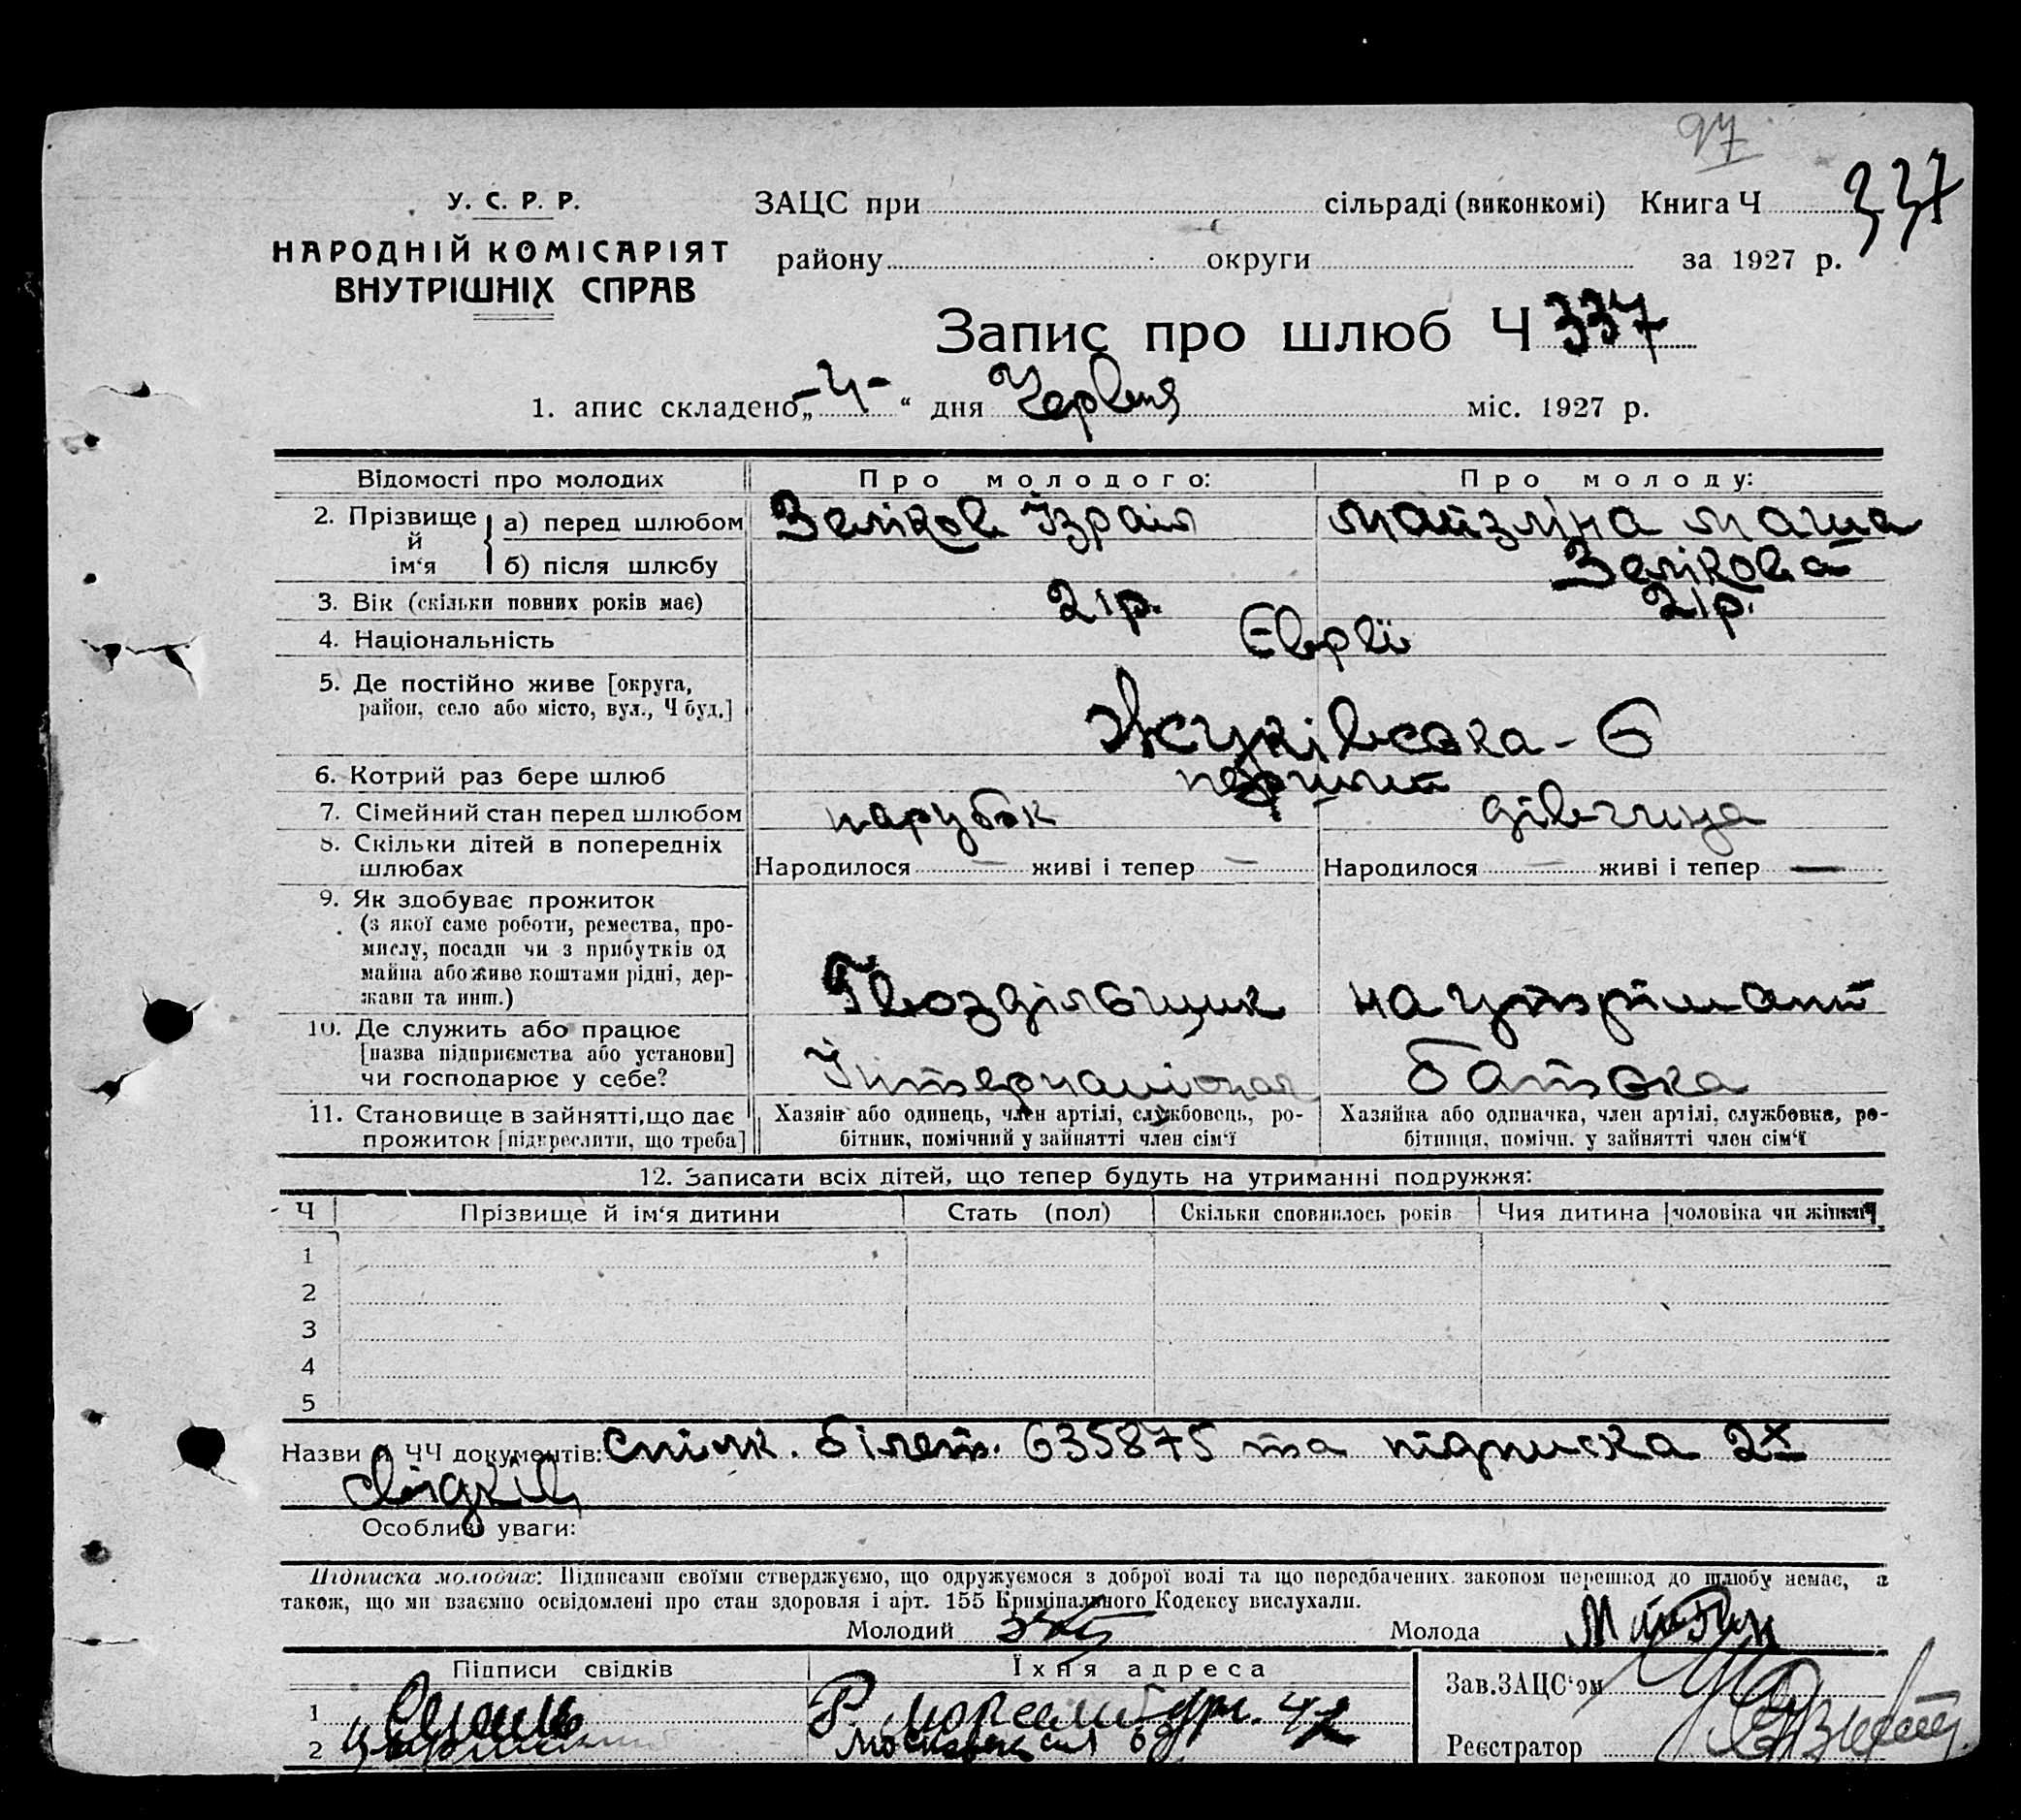 97
337
У. С. Р. Р.
НАРОДНІЙ КОМІСАРІЯТ
ВНУТРІШНІХ СПРАВ
ЗАЦС при сільраді (виконкомі) Книга Ч
району округи за 1927 р.
Запис про шлюб Ч 337
1. апис складено „-4-“ дня Червня міс. 1927 р.
Відомості про молодих Про молодого: Про молоду:
2. Прізвище й ім‘я а) перед шлюбом Зеліков Ізраіл Майзліна Маша
б) після шлюбу Зелікова
3. Вік (скільки повних років має) 21р. 21р.
4. Національність Євреї
5. Де постійно живе [округа,
район, село або місто, вул., Ч буд.] Жуківська - 6
6. Котрий раз бере шлюб перший
7. Сімейний стан перед шлюбом парубок дівчина
8. Скільки дітей в попередніх
шлюбах Народилося — живі і тепер — Народилося — живі і тепер —
9. Як здобуває прожиток
(з якої саме роботи, ремества, про-
мислу, посади чи з прибутків од
майна або живе коштами рідні, дер-
жави та инш.) Гвоздільщик на утріманні
10. Де служить або працює
[назва підприємства або установи]
чи господарює у себе? Інтернаціонал батька
11. Становище в зайнятті, що дає
прожиток [підкреслити, що треба]
Хазяін або одинець, член артілі, службовець, ро-
бітник, помічний у зайнятті член сім‘ї
Хазяйка або одиначка, член артілі, службовка, ро-
бітниця, помічн. у зайнятті член сім‘ї
12. Записати всіх дітей, що тепер будуть на утриманні подружжя:
Ч Прізвище й ім‘я дитини Стать (пол) Скільки сповнилось років Чия дитина [чоловіка чи жінки]
1
2
3
4
5
Назви й ЧЧ документів: Спілк. білет. 635875 та підписка 2х
свідків
Особливі уваги:
Підписка молодих: Підписами своїми стверджуємо, що одружуємося з доброї волі та що передбачених законом перешкод до шлюбу немає, а
також, що ми взаємно освідомлені про стан здоровля і арт. 155 Кримінального Кодексу вислухали.
Молодий Молода
Підписи свідків Їхня адреса Зав.ЗАЦС‘ом
1
2 Реєстратор